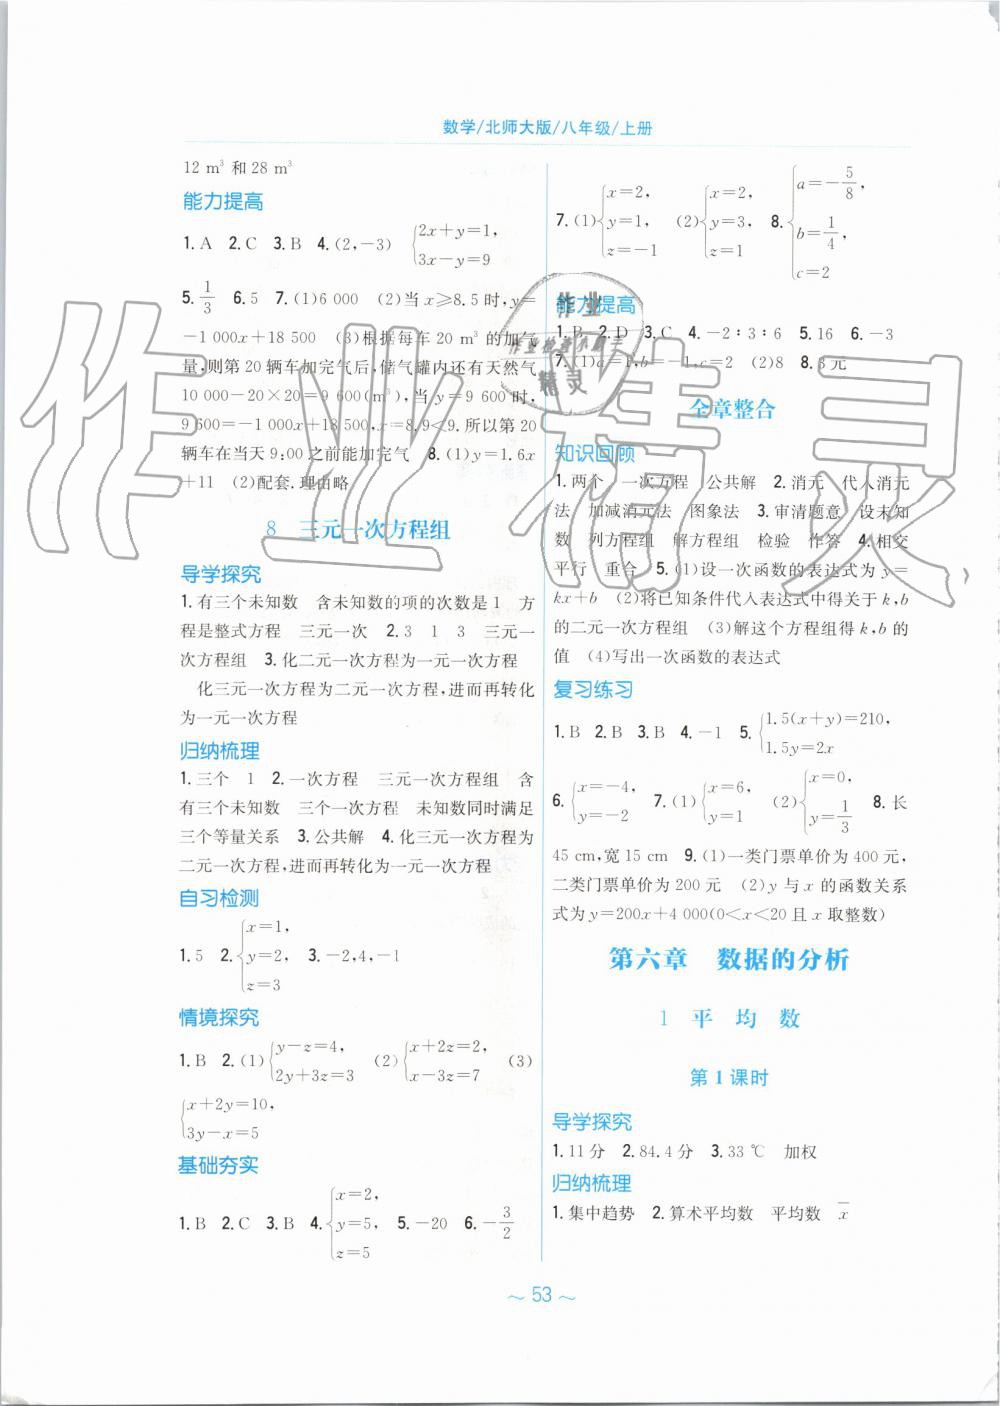 数学/北师大版/八年级/上册
12 m³ 和 28 m³
能力提高
1. A 2. C 3. B 4. (2,-3) {2x+y=1, 3x-y=9
5. 1/3 6. 5 7. (1)6 000 (2)当 x≥8.5 时,y=
-1 000x+18 500 (3)根据每车 20 m³ 的加气
量,则第 20 辆车加完气后,储气罐内还有天然气
10 000-20×20=9 600(m³),当 y=9 600 时,
9 600=-1 000x+18 500,x=8.9<9.所以第 20
辆车在当天 9:00 之前能加完气 8. (1)y=1.6x
+11 (2)配套.理由略
8 三元一次方程组
导学探究
1. 有三个未知数 含未知数的项的次数是 1 方
程是整式方程 三元一次 2. 3 1 3 三元一
次方程组 3. 化二元一次方程为一元一次方程
化三元一次方程为二元一次方程,进而再转化
为一元一次方程
归纳梳理
1. 三个 1 2. 一次方程 三元一次方程组 含
有三个未知数 三个一次方程 未知数同时满足
三个等量关系 3. 公共解 4. 化三元一次方程为
二元一次方程,进而再转化为一元一次方程
自习检测
1. 5 2. {x=1, y=2, z=3 3. -2,4,-1
情境探究
1. B 2. (1){y-z=4, 2y+3z=3 (2){x+2z=2, x-3z=7 (3)
{x+2y=10, 3y-x=5
基础夯实
1. B 2. C 3. B 4. {x=2, y=5, z=5 5. -20 6. -3/2
7. (1){x=2, y=1, z=-1 (2){x=2, y=3, z=1 8. {a=-5/8, b=1/4, c=2
能力提高
1. B 2. D 3. C 4. -2∶3∶6 5. 16 6. -3
7. (1)a=1,b=-1,c=2 (2)8 8. 8 元
全章整合
知识回顾
1. 两个 一次方程 公共解 2. 消元 代入消元
法 加减消元法 图象法 3. 审清题意 设未知
数 列方程组 解方程组 检验 作答 4. 相交
平行 重合 5. (1)设一次函数的表达式为 y=
kx+b (2)将已知条件代入表达式中得关于 k,b
的二元一次方程组 (3)解这个方程组得 k,b 的
值 (4)写出一次函数的表达式
复习练习
1. B 2. B 3. B 4. -1 5. {1.5(x+y)=210, 1.5y=2x
6. {x=-4, y=-2 7. (1){x=6, y=1 (2){x=0, y=1/3 8. 长
45 cm,宽 15 cm 9. (1)一类门票单价为 400 元,
二类门票单价为 200 元 (2)y 与 x 的函数关系
式为 y=200x+4 000(0<x<20 且 x 取整数)
第六章 数据的分析
1 平均数
第 1 课时
导学探究
1. 11 分 2. 84.4 分 3. 33 ℃ 加权
归纳梳理
1. 集中趋势 2. 算术平均数 平均数 x̄
~ 53 ~
作业精灵
作业
精灵